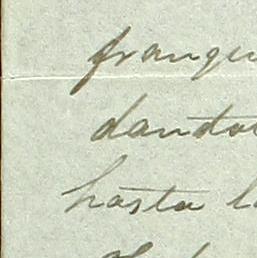 franqu
danto
hasta l